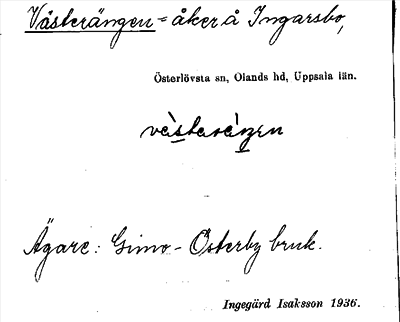 Västerängen = åker å Ingarsbo,
Österlövsta sn, Olands hd, Uppsala län.
vä̀steräŋen
Ägare: Gimo-Österby bruk.
Ingegärd Isaksson 1936.